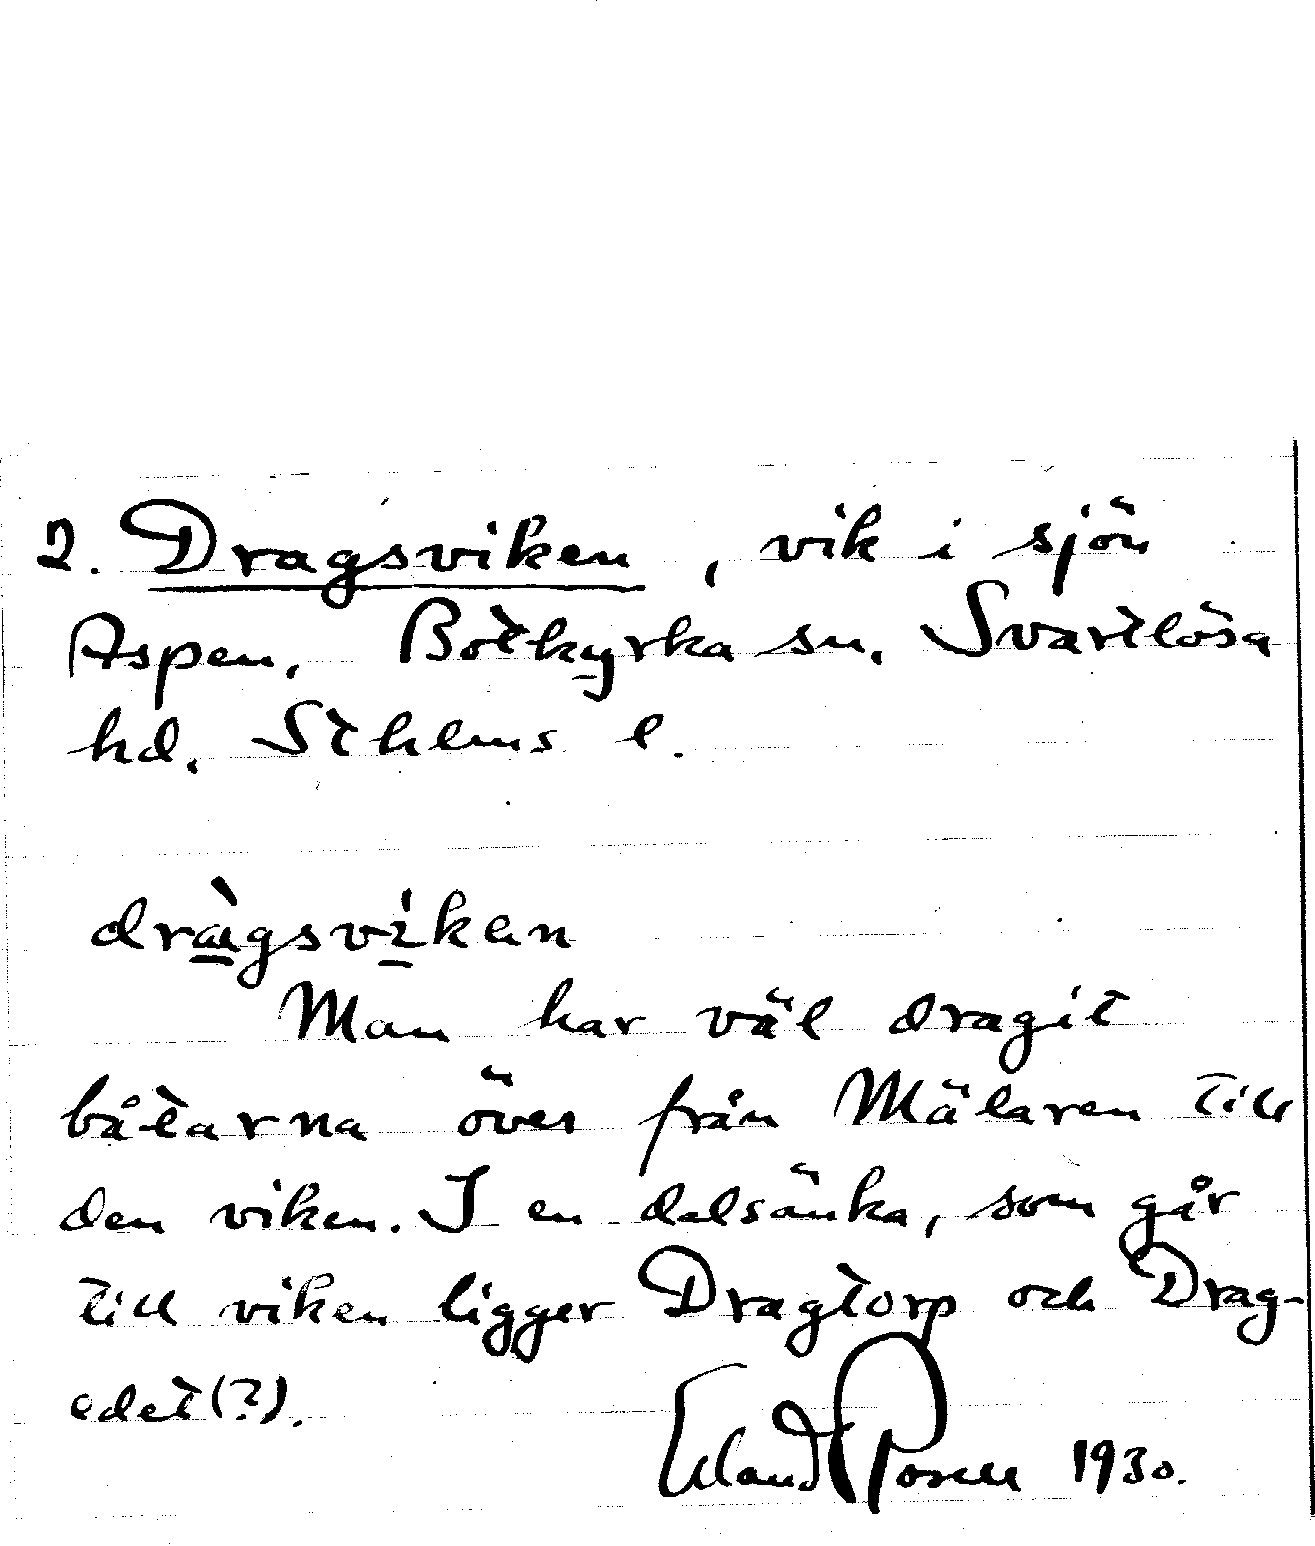 2. Dragsviken, vik i sjön
Aspen, Botkyrka sn, Svartlösa
hd. Sthlms l.
dràgsvíkən
Man har väl dragit
båtarna över från Mälaren till
den viken. I en dalsänka, som går
till viken ligger Dragtorp och Drag-
edet(?).
Erland Rosell 1930.